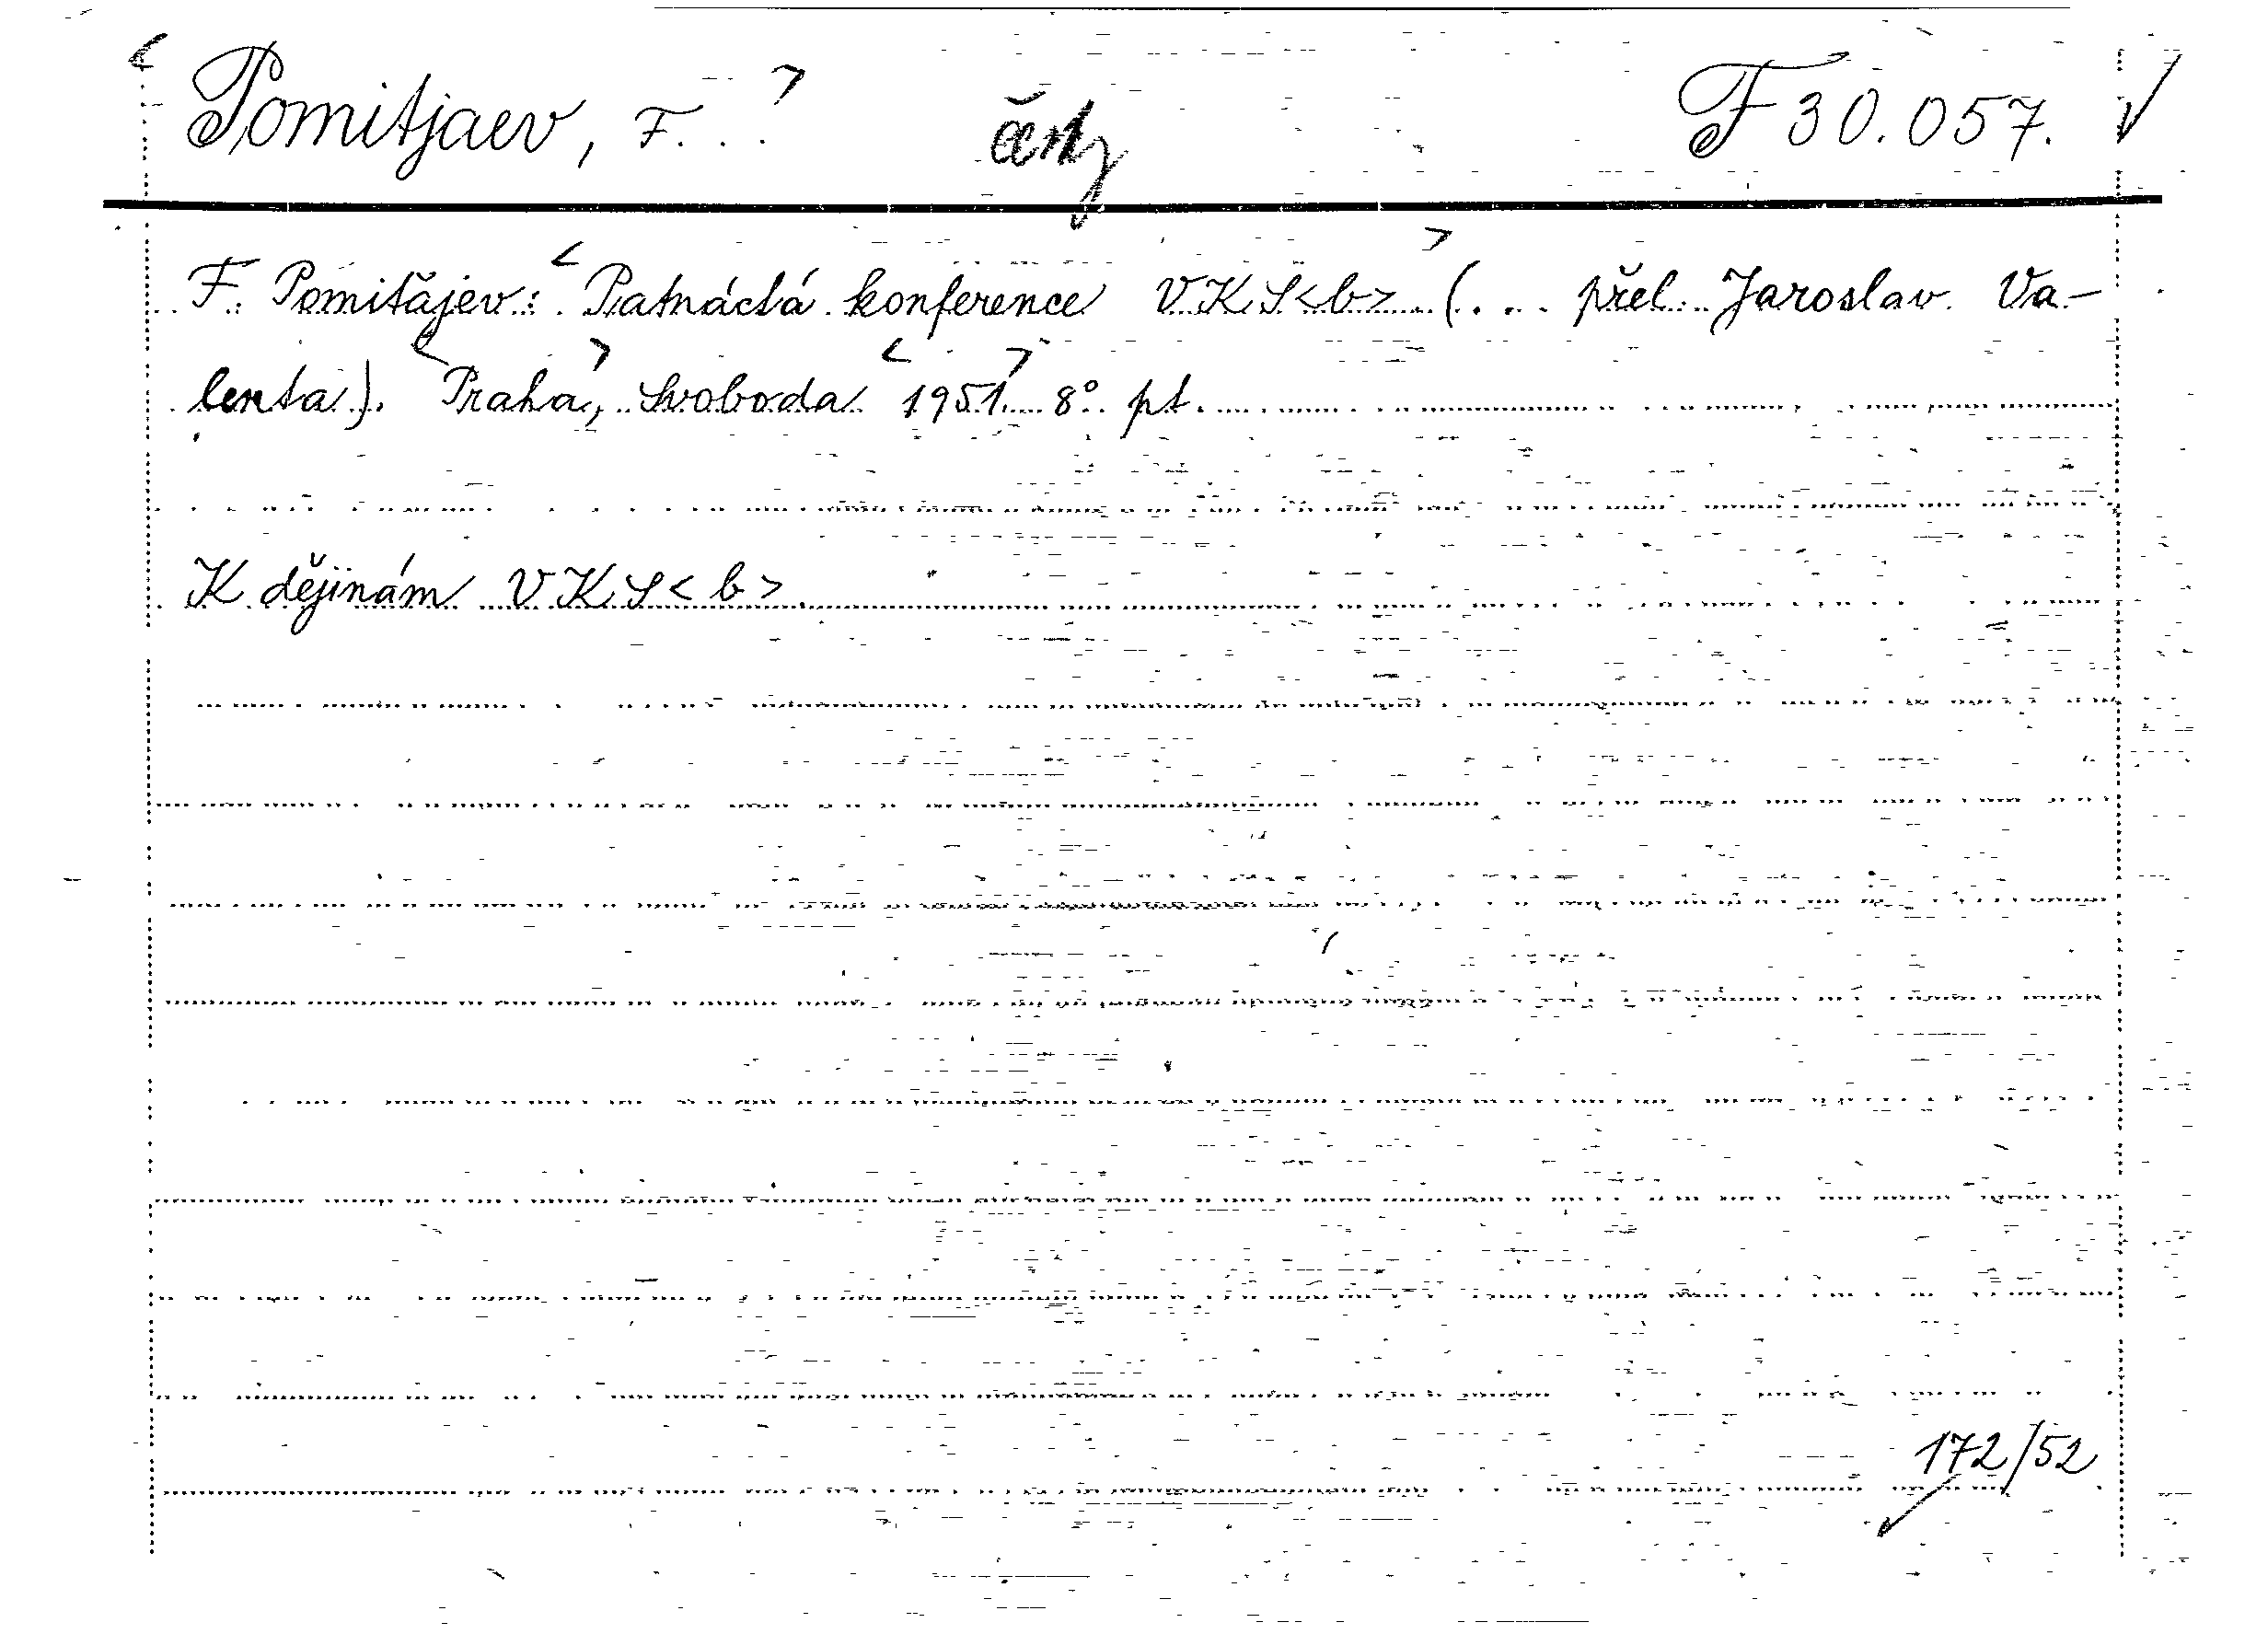 <Pomitjaev, F...> česky F 30.057.
F. Pomiťajev: <Patnáctá konference VKS<b>> (... přel. Jaroslav Va-
lenta). <Praha>, Svoboda <1951> 8° pt.
K dějinám VKS<b>.
172/52